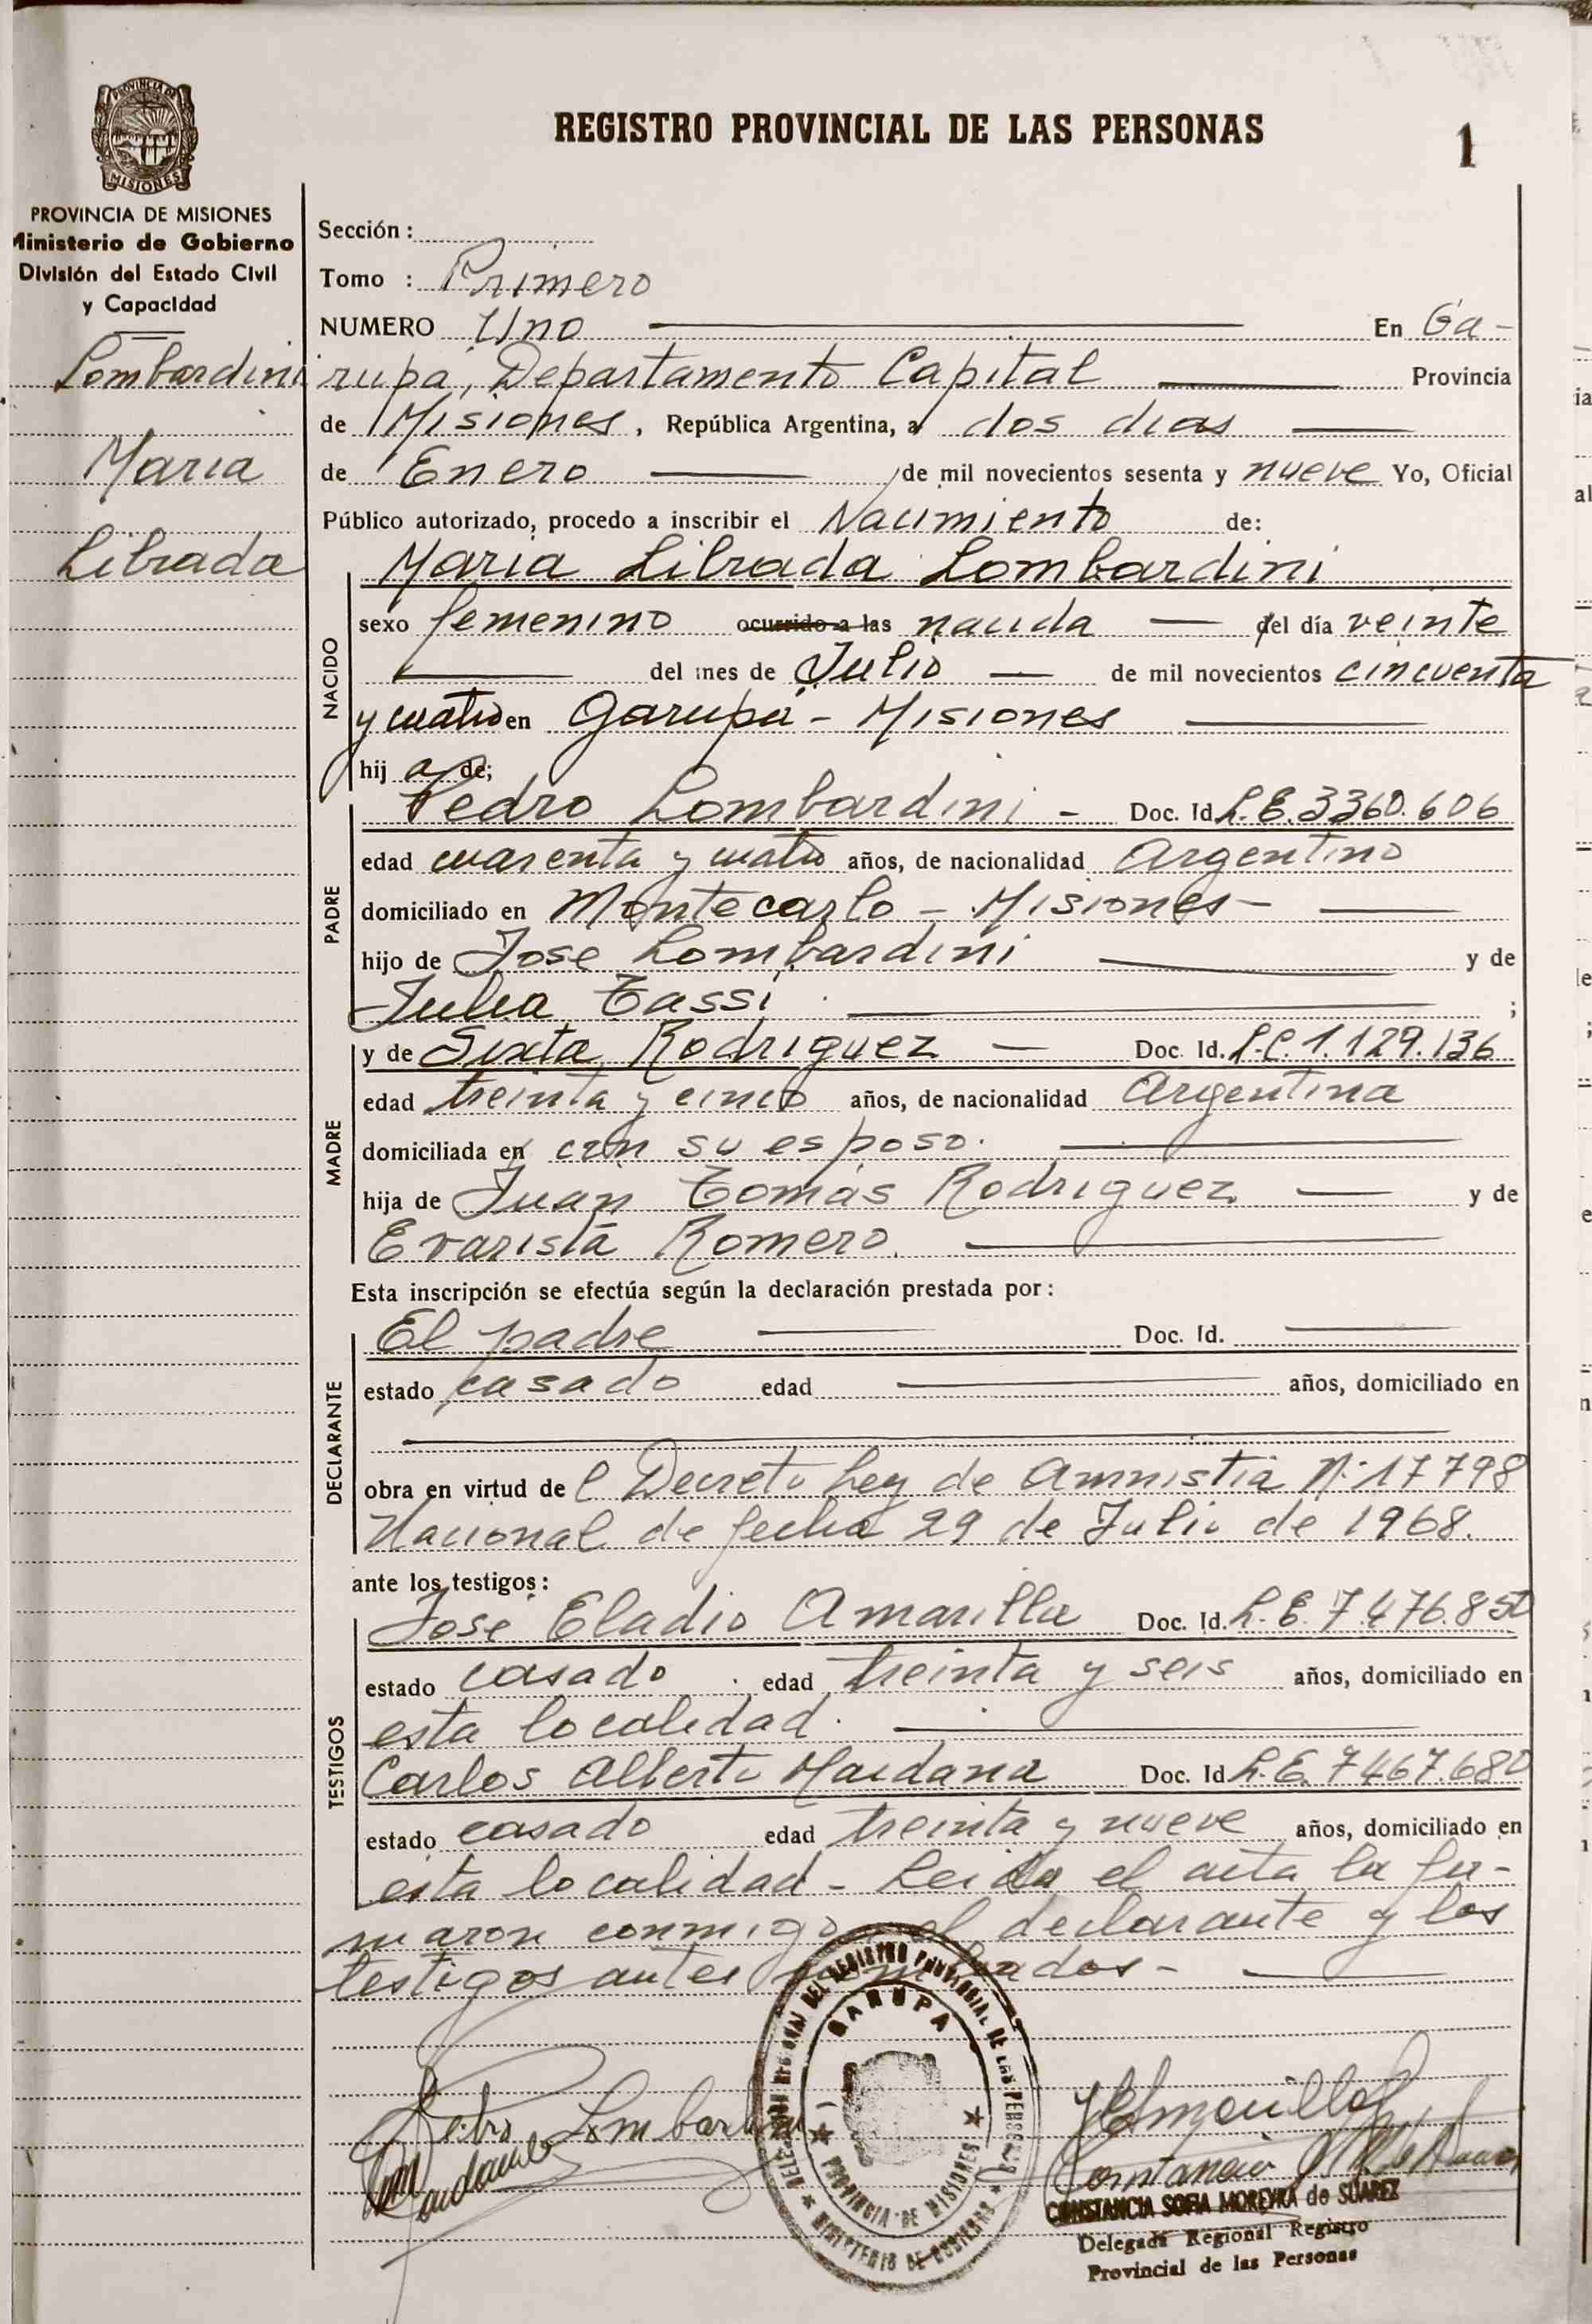 PROVINCIA DE
MISIONES
REGISTRO PROVINCIAL DE LAS PERSONAS
1
PROVINCIA DE MISIONES
Ministerio de Gobierno
División del Estado Civil
y Capacidad
Lombardini
Maria
Librada
Sección :
Tomo : Primero
NUMERO Uno En Ga-
rupa, Departamento Capital Provincia
de Misiones, República Argentina, a dos dias
de Enero de mil novecientos sesenta y nueve Yo, Oficial
Público autorizado, procedo a inscribir el Nacimiento de:
NACIDO
Maria Librada Lombardini
sexo femenino ocurrido a las nacida del día veinte
del mes de Julio de mil novecientos cincuenta
y cuatro en Garupá - Misiones
hij a de;
PADRE
Pedro Lombardini - Doc. Id. L.E. 3360.606
edad cuarenta y cuatro años, de nacionalidad Argentino
domiciliado en Montecarlo - Misiones -
hijo de Jose Lombardini y de
Julia Tassi ;
MADRE
y de Sixta Rodriguez Doc. Id. L.C. 1.129.136
edad treinta y cinco años, de nacionalidad Argentina
domiciliada en con su esposo.
hija de Juan Tomás Rodriguez y de
Evarista Romero.
Esta inscripción se efectúa según la declaración prestada por :
DECLARANTE
El padre Doc. Id.
estado casado edad años, domiciliado en
obra en virtud de l Decreto Ley de Amnistia N: 17798
Nacional de fecha 29 de Julio de 1968.
ante los testigos :
TESTIGOS
José Eladio Amarilla Doc. Id. L.E. 7.476.850
estado casado edad treinta y seis años, domiciliado en
esta localidad.
Carlos Alberto Maidana Doc. Id L.E. 7467.680
estado casado edad treinta y nueve años, domiciliado en
esta localidad - Leida el acta la fir-
maron conmigo, el declarante y los
testigos antes nombrados -
GARUPA
PROVINCIA DE MISIONES
MINISTERIO DE GOBIERNO
Pedro Lombardini
CONSTANCIA SOFIA MOREYRA de SUAREZ
Delegada Regional Registro
Provincial de las Personas